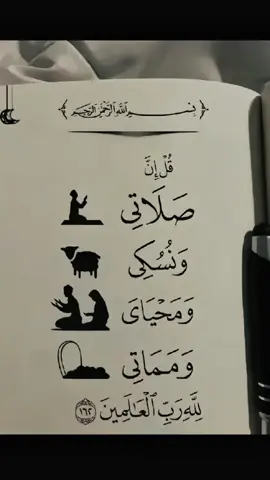 بِسْمِ ٱللَّهِ ٱلرَّحْمَٰنِ ٱلرَّحِيمِ
قُلْ إِنَّ
صَلَاتِى
وَنُسُكِى
وَمَحْيَاىَ
وَمَمَاتِى
لِلَّهِ رَبِّ ٱلْعَٰلَمِينَ ١٦٢